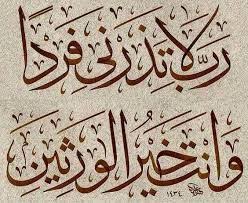 رَبِّ لَا تَذَرْنِي فَرْدًا
وَأَنْتَ خَيْرُ الْوَارِثِينَ
١٤٣٤